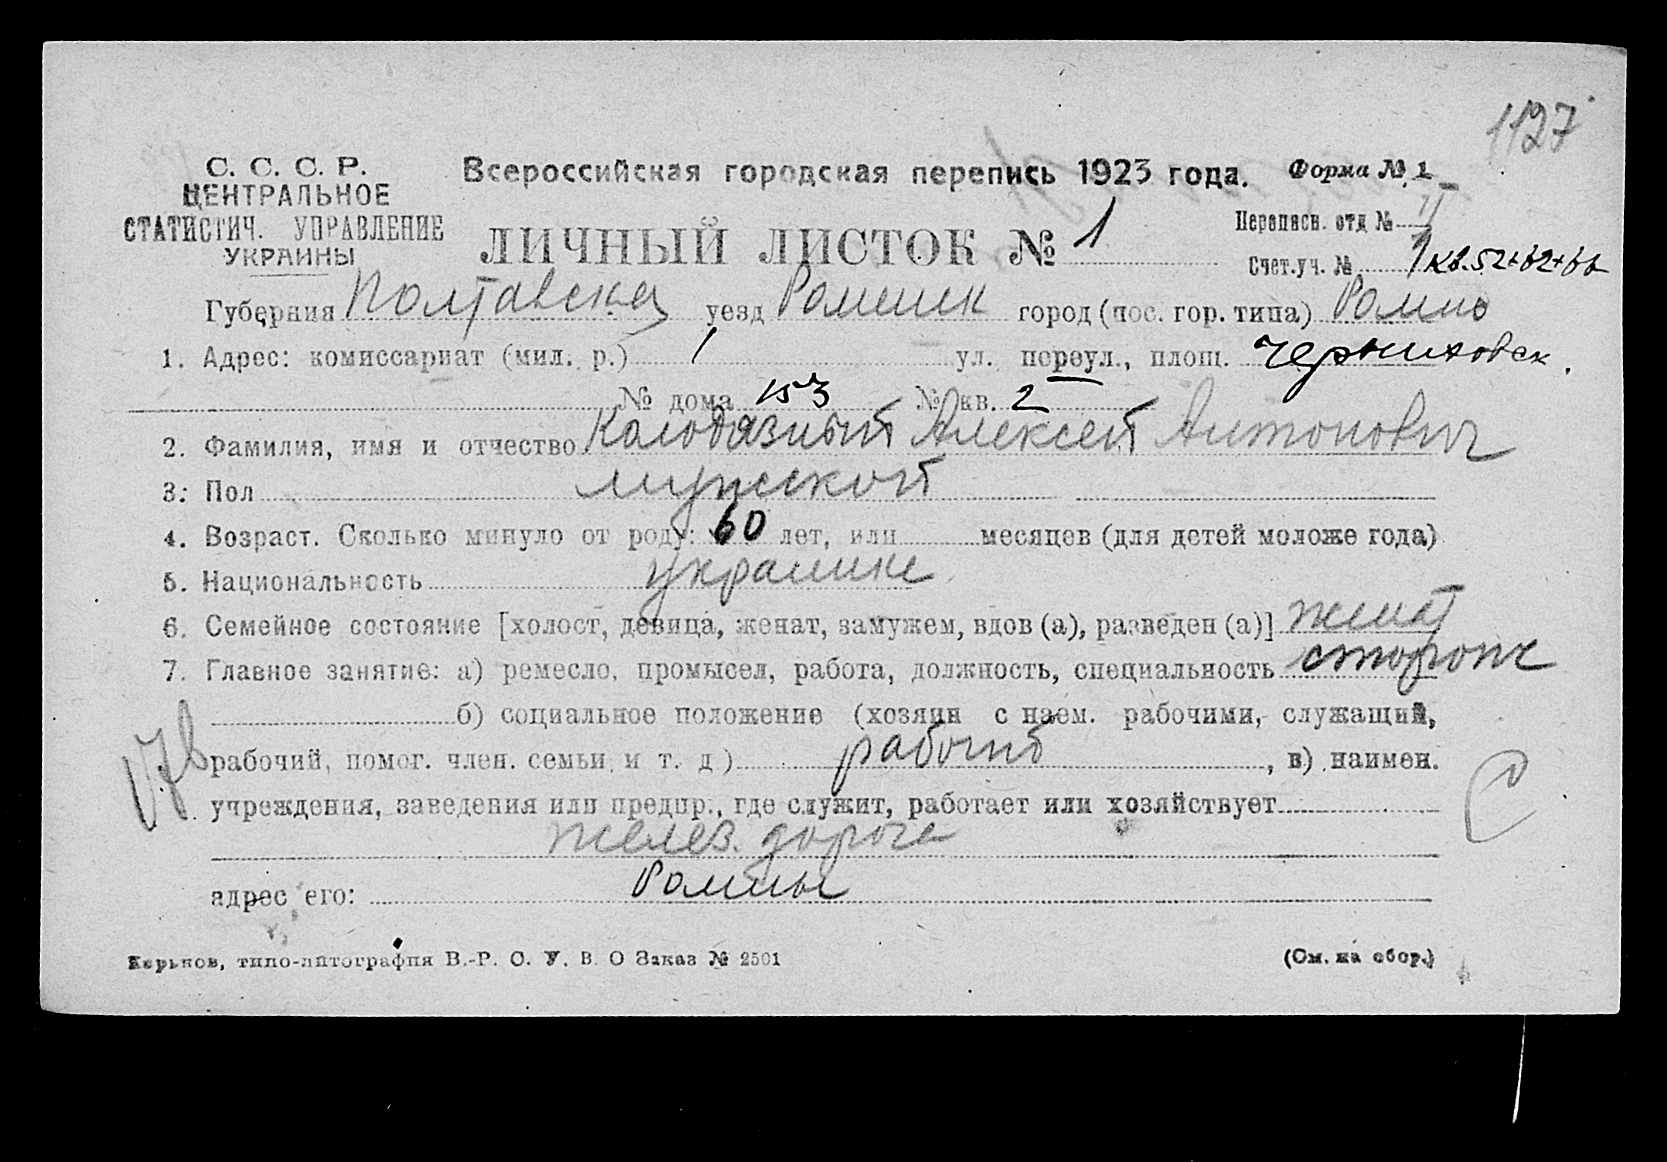 1127
С. С. С. Р.
ЦЕНТРАЛЬНОЕ
СТАТИСТИЧ. УПРАВЛЕНИЕ
УКРАИНЫ
Всероссийская городская перепись 1923 года.
Форма № 1
ЛИЧНЫЙ ЛИСТОК № 1
Переписн. отд № II
Счет.уч. № 1 кв. 52+62+66
Губерния Полтавска уезд Роменск город (пос. гор. типа) Ромны
1. Адрес: комиссариат (мил. р.) 1 ул. переул., площ. Черниховск.
№ дома 153 № кв. 2
2. Фамилия, имя и отчество Колодязный Алексей Антонович
3. Пол мужской
4. Возраст. Сколько минуло от роду: 60 лет, или месяцев (для детей моложе года)
5. Национальность украинке
6. Семейное состояние [холост, девица, женат, замужем, вдов (а), разведен (а)] женат
7. Главное занятие: а) ремесло, промысел, работа, должность, специальность сторож
б) социальное положение (хозяин с наем. рабочими, служащий,
рабочий, помог. член. семьи и т. д) рабочий, в) наимен.
учреждения, заведения или предпр., где служит, работает или хозяйствует
желез. дороге
адрес его: Ромны
Харьков, типо-литография В.-Р. С. У. В. О Заказ № 2501
(См. на обор.)